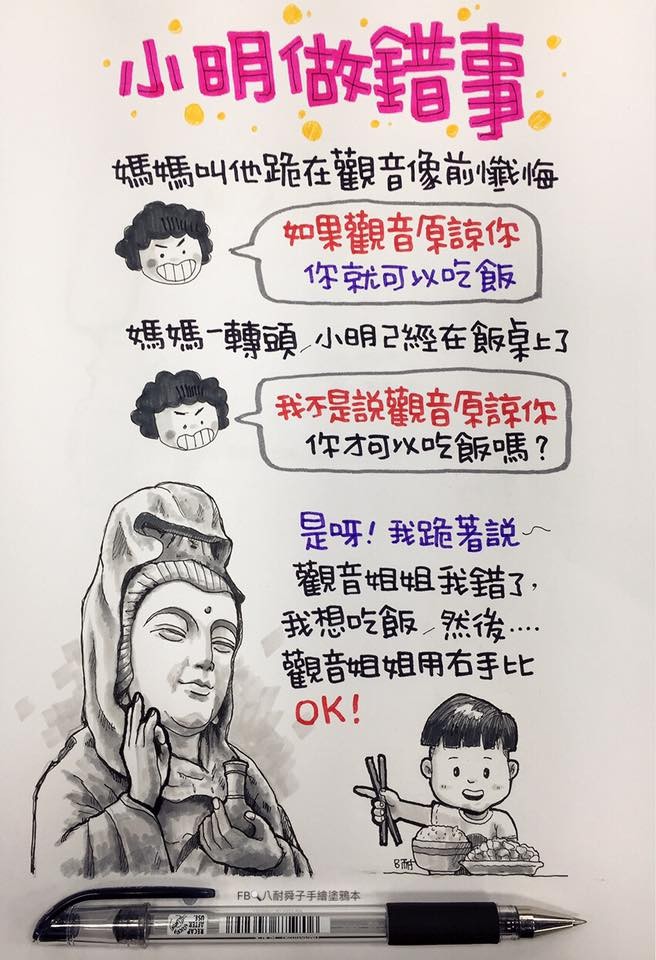 小明做錯事
媽媽叫他跪在觀音像前懺悔
如果觀音原諒你
你就可以吃飯
媽媽一轉頭,小明已經在飯桌上了
我不是說觀音原諒你
你才可以吃飯嗎?
是呀!我跪著說~
觀音姐姐我錯了,
我想吃飯,然後....
觀音姐姐用右手比
OK!
8耐
FB 八耐舜子手繪塗鴉本
RECAP
AFTER
USE